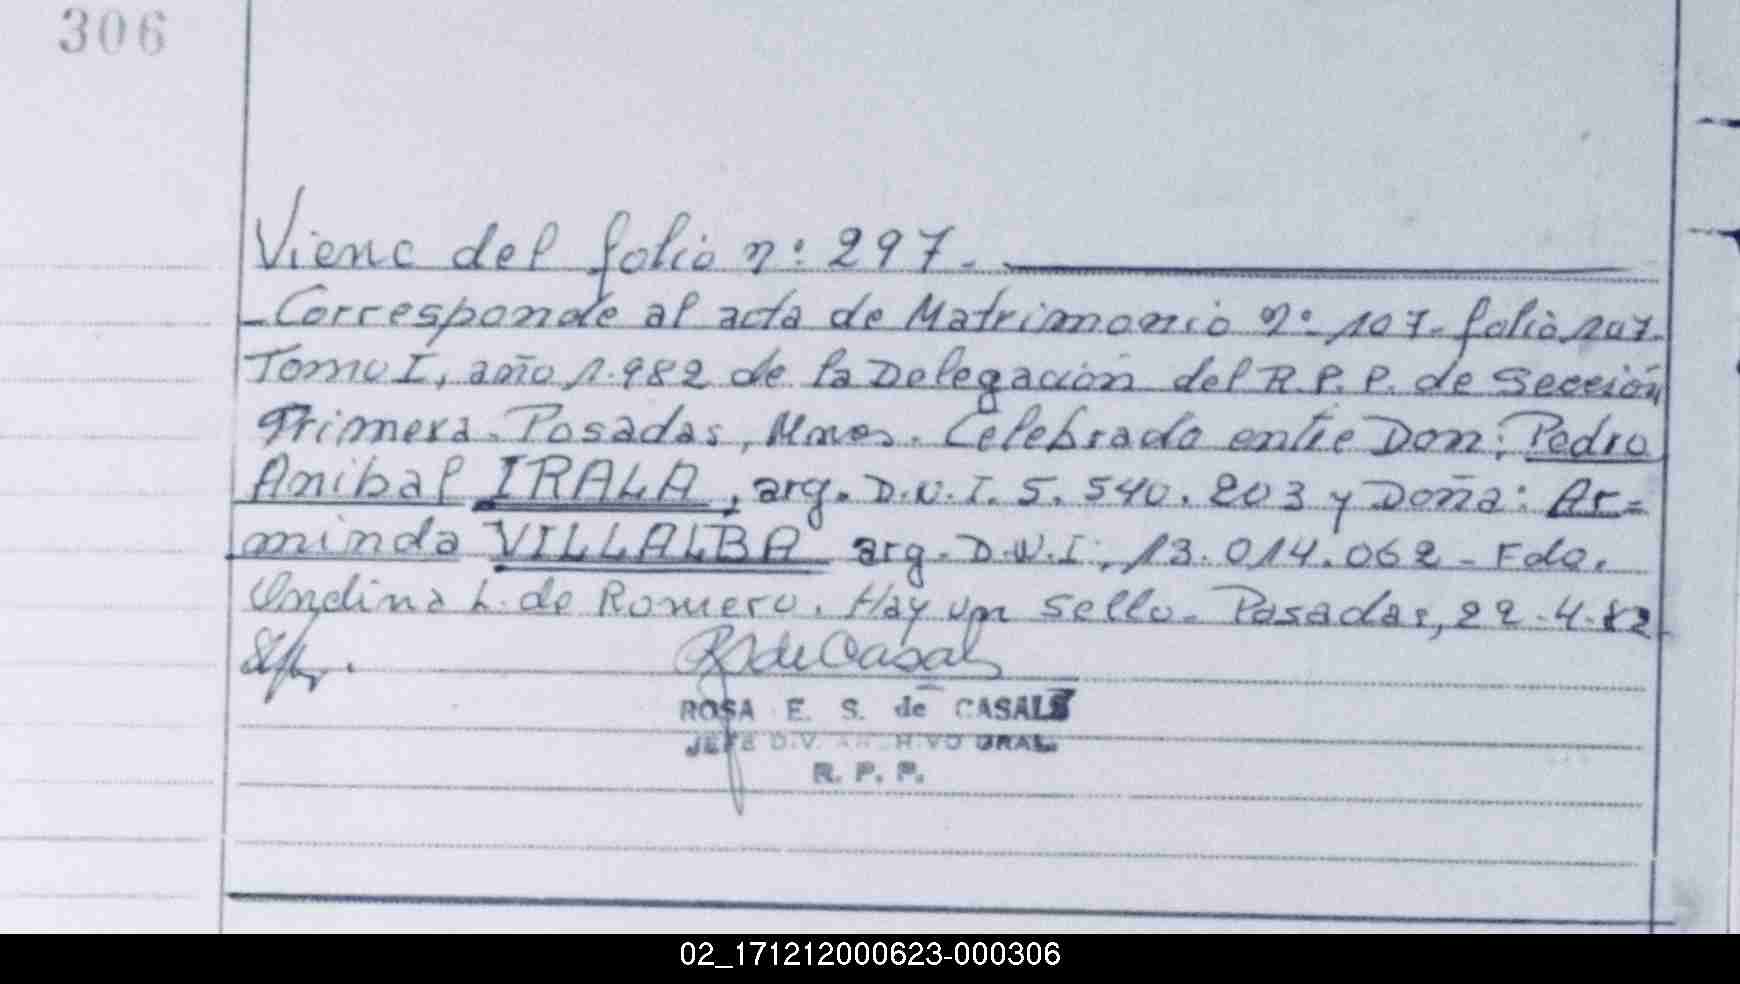 306
Viene del folio nº 297.
- Corresponde al acta de Matrimonio nº 107- folio 107-
Tomo I, año 1.982 de la Delegación del R.P.P. de Sección
Primera. Posadas, Mnes. Celebrado entre Don: Pedro
Anibal IRALA, arg. D.N.I. 5.540.203 y Doña: Ar=
minda VILLALBA arg. D.N.I. 13.014.062 - Fdo.
Ondina L. de Romero. Hay un sello. Posadas, 22-4-82
RS de Casals
ROSA E. S. de CASALS
JEFE DIV. ARCHIVO GRAL.
R. P. P.
02_171212000623-000306